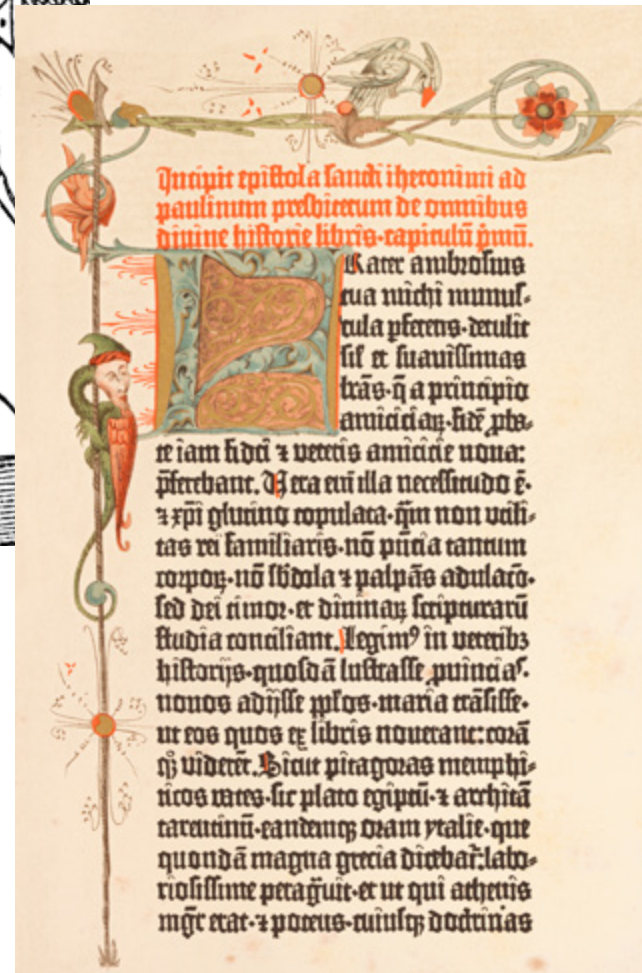 Incipit epistola sancti iheronimi ad
paulinum presbiterum de omnibus
divine historie libris·capitulū p̄mū.
FRater ambrosius
tua michi munus-
cula pferens·detulit
sil' et suavissimas
lrās·q̄ a principio
amiciciaꝝ·fidē ꝓba-
te iam fidei ⁊ veteris amicicie nova:
p̄ferebant. Vera eni illa necessitudo ē·
⁊ xp̄i glutino copulata·qm̄ non utili-
tas rei familiaris·nō pn̄cia tantum
corpoꝝ·nō sbdola ⁊ palpās adulacō·
sed dei timor·et divinaꝝ scripturarū
studia conciliant. Legimꝰ in veteribꝫ
historijs·quosdā lustrasse ꝓuincias·
novos adijsse pplos·maria trāsisse·
ut eos quos ex libris noverant: corā
qꝫ viderēt. Sicut pitagoras memphi-
ticos vates·sic plato egiptū·⁊ architā
tarentinū·eandemqꝫ oram ytalie·que
quondā magna grecia dicebat̄: labo-
riosissime peragᷣvit·et ut qui athenis
mgr̄ erat·⁊ potens·cuiusqꝫ doctrinas